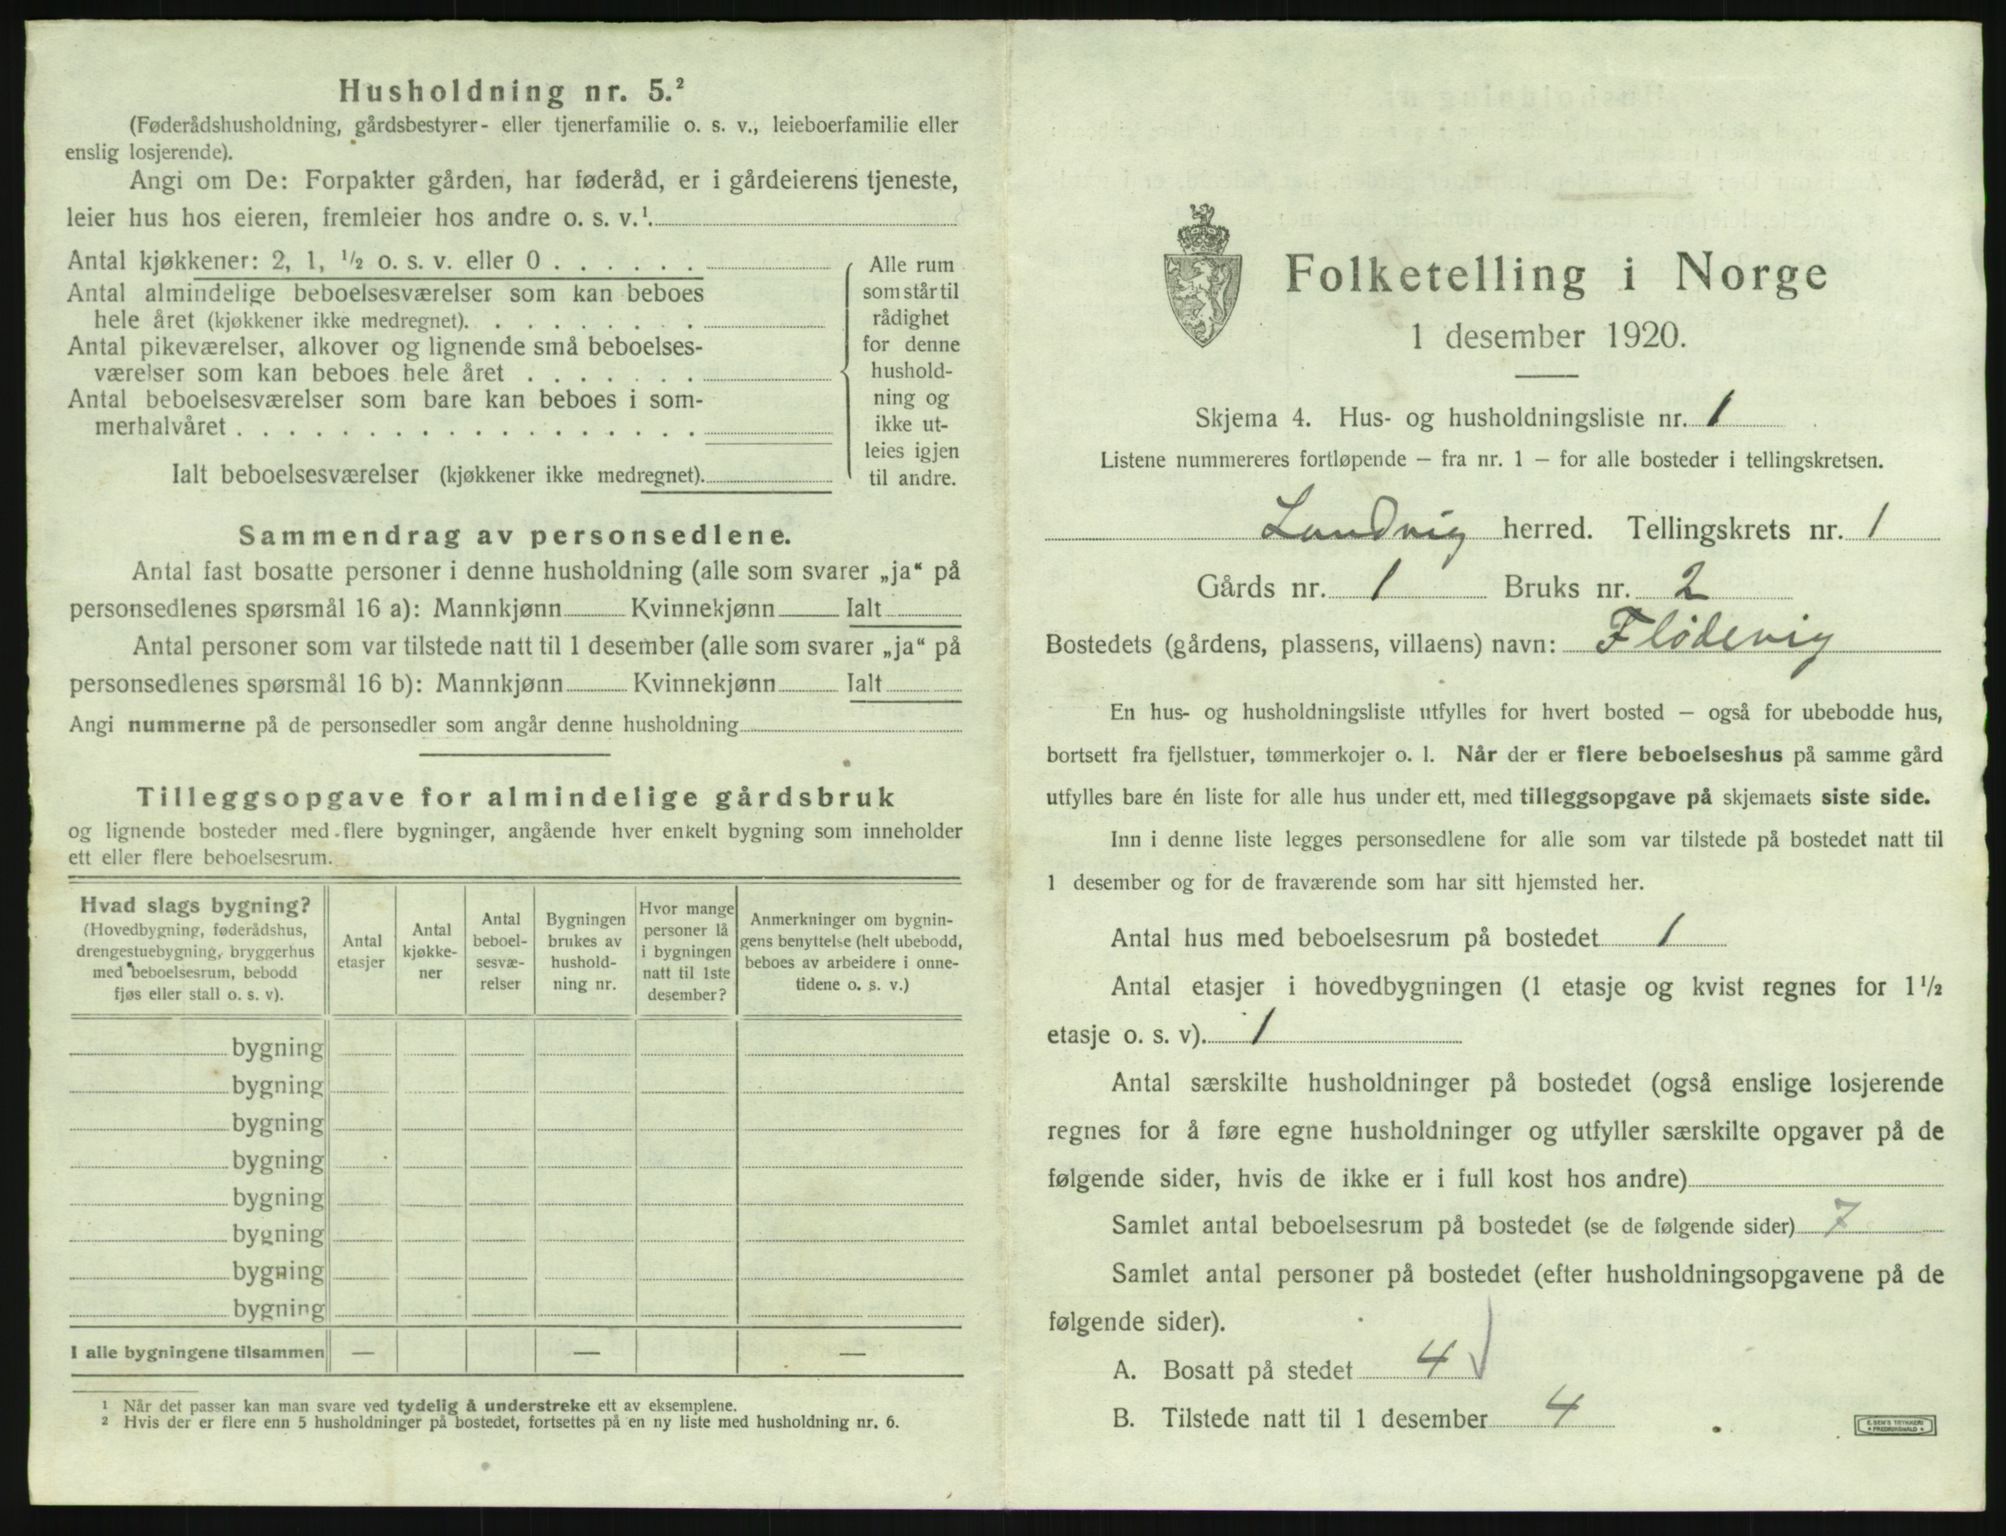 Husholdning nr. 5.²
(Føderådshusholdning, gårdsbestyrer- eller tjenerfamilie o. s. v., leieboerfamilie eller
enslig losjerende).
Angi om De: Forpakter gården, har føderåd, er i gårdeierens tjeneste,
leier hus hos eieren, fremleier hos andre o. s. v.¹
Antal kjøkkener: 2, 1, ½ o. s. v. eller 0 . . . . . .
Antal almindelige beboelsesværelser som kan beboes
hele året (kjøkkener ikke medregnet). . . . . . . . .
Antal pikeværelser, alkover og lignende små beboelses-
værelser som kan beboes hele året . . . . . . .
Antal beboelsesværelser som bare kan beboes i som-
merhalvåret . . . . . . . . . . . . . . . . . .
Ialt beboelsesværelser (kjøkkener ikke medregnet).
Alle rum
som står til
rådighet
for denne
hushold-
ning og
ikke ut-
leies igjen
til andre.
Sammendrag av personsedlene.
Antal fast bosatte personer i denne husholdning (alle som svarer „ja“ på
personsedlenes spørsmål 16 a): Mannkjønn Kvinnekjønn Ialt
Antal personer som var tilstede natt til 1 desember (alle som svarer „ja“ på
personsedlenes spørsmål 16 b): Mannkjønn Kvinnekjønn Ialt
Angi nummerne på de personsedler som angår denne husholdning
Tilleggsopgave for almindelige gårdsbruk
og lignende bosteder med flere bygninger, angående hver enkelt bygning som inneholder
ett eller flere beboelsesrum.
Hvad slags bygning?
(Hovedbygning, føderådshus,
drengestuebygning, bryggerhus
med beboelsesrum, bebodd
fjøs eller stall o. s. v).
Antal
etasjer
Antal
kjøkke-
ner
Antal
beboel-
sesvæ-
relser
Bygningen
brukes av
hushold-
ning nr.
Hvor mange
personer lå
i bygningen
natt til 1ste
desember?
Anmerkninger om bygnin-
gens benyttelse (helt ubebodd,
beboes av arbeidere i onne-
tidene o. s. v.)
bygning
bygning
bygning
bygning
bygning
bygning
bygning
bygning
I alle bygningene tilsammen — — —
¹ Når det passer kan man svare ved tydelig å understreke ett av eksemplene.
² Hvis der er flere enn 5 husholdninger på bostedet, fortsettes på en ny liste med husholdning nr. 6.
Folketelling i Norge
1 desember 1920.
Skjema 4. Hus- og husholdningsliste nr. 1
Listene nummereres fortløpende – fra nr. 1 – for alle bosteder i tellingskretsen.
Landvig herred. Tellingskrets nr. 1
Gårds nr. 1 Bruks nr. 2
Bostedets (gårdens, plassens, villaens) navn: Flødevig
En hus- og husholdningsliste utfylles for hvert bosted – også for ubebodde hus,
bortsett fra fjellstuer, tømmerkojer o. l. Når der er flere beboelseshus på samme gård
utfylles bare én liste for alle hus under ett, med tilleggsopgave på skjemaets siste side.
Inn i denne liste legges personsedlene for alle som var tilstede på bostedet natt til
1 desember og for de fraværende som har sitt hjemsted her.
Antal hus med beboelsesrum på bostedet 1
Antal etasjer i hovedbygningen (1 etasje og kvist regnes for 1½
etasje o. s. v). 1
Antal særskilte husholdninger på bostedet (også enslige losjerende
regnes for å føre egne husholdninger og utfyller særskilte opgaver på de
følgende sider, hvis de ikke er i full kost hos andre)
Samlet antal beboelsesrum på bostedet (se de følgende sider) 7
Samlet antal personer på bostedet (efter husholdningsopgavene på de
følgende sider).
A. Bosatt på stedet 4
B. Tilstede natt til 1 desember 4
E. SEM'S TRYKKERI
FREDRIKSHALD